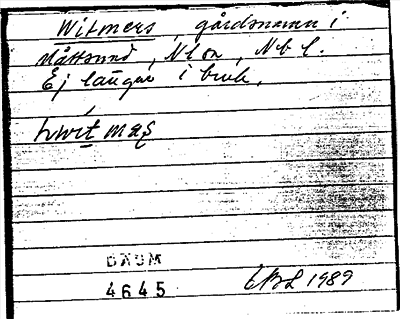 Witmers, gårdsnamn i
Måttsund, Nlon, Nbl.
Ej längre i bruk.
hwìt mæʂ
DAUM
4645
EBL 1989